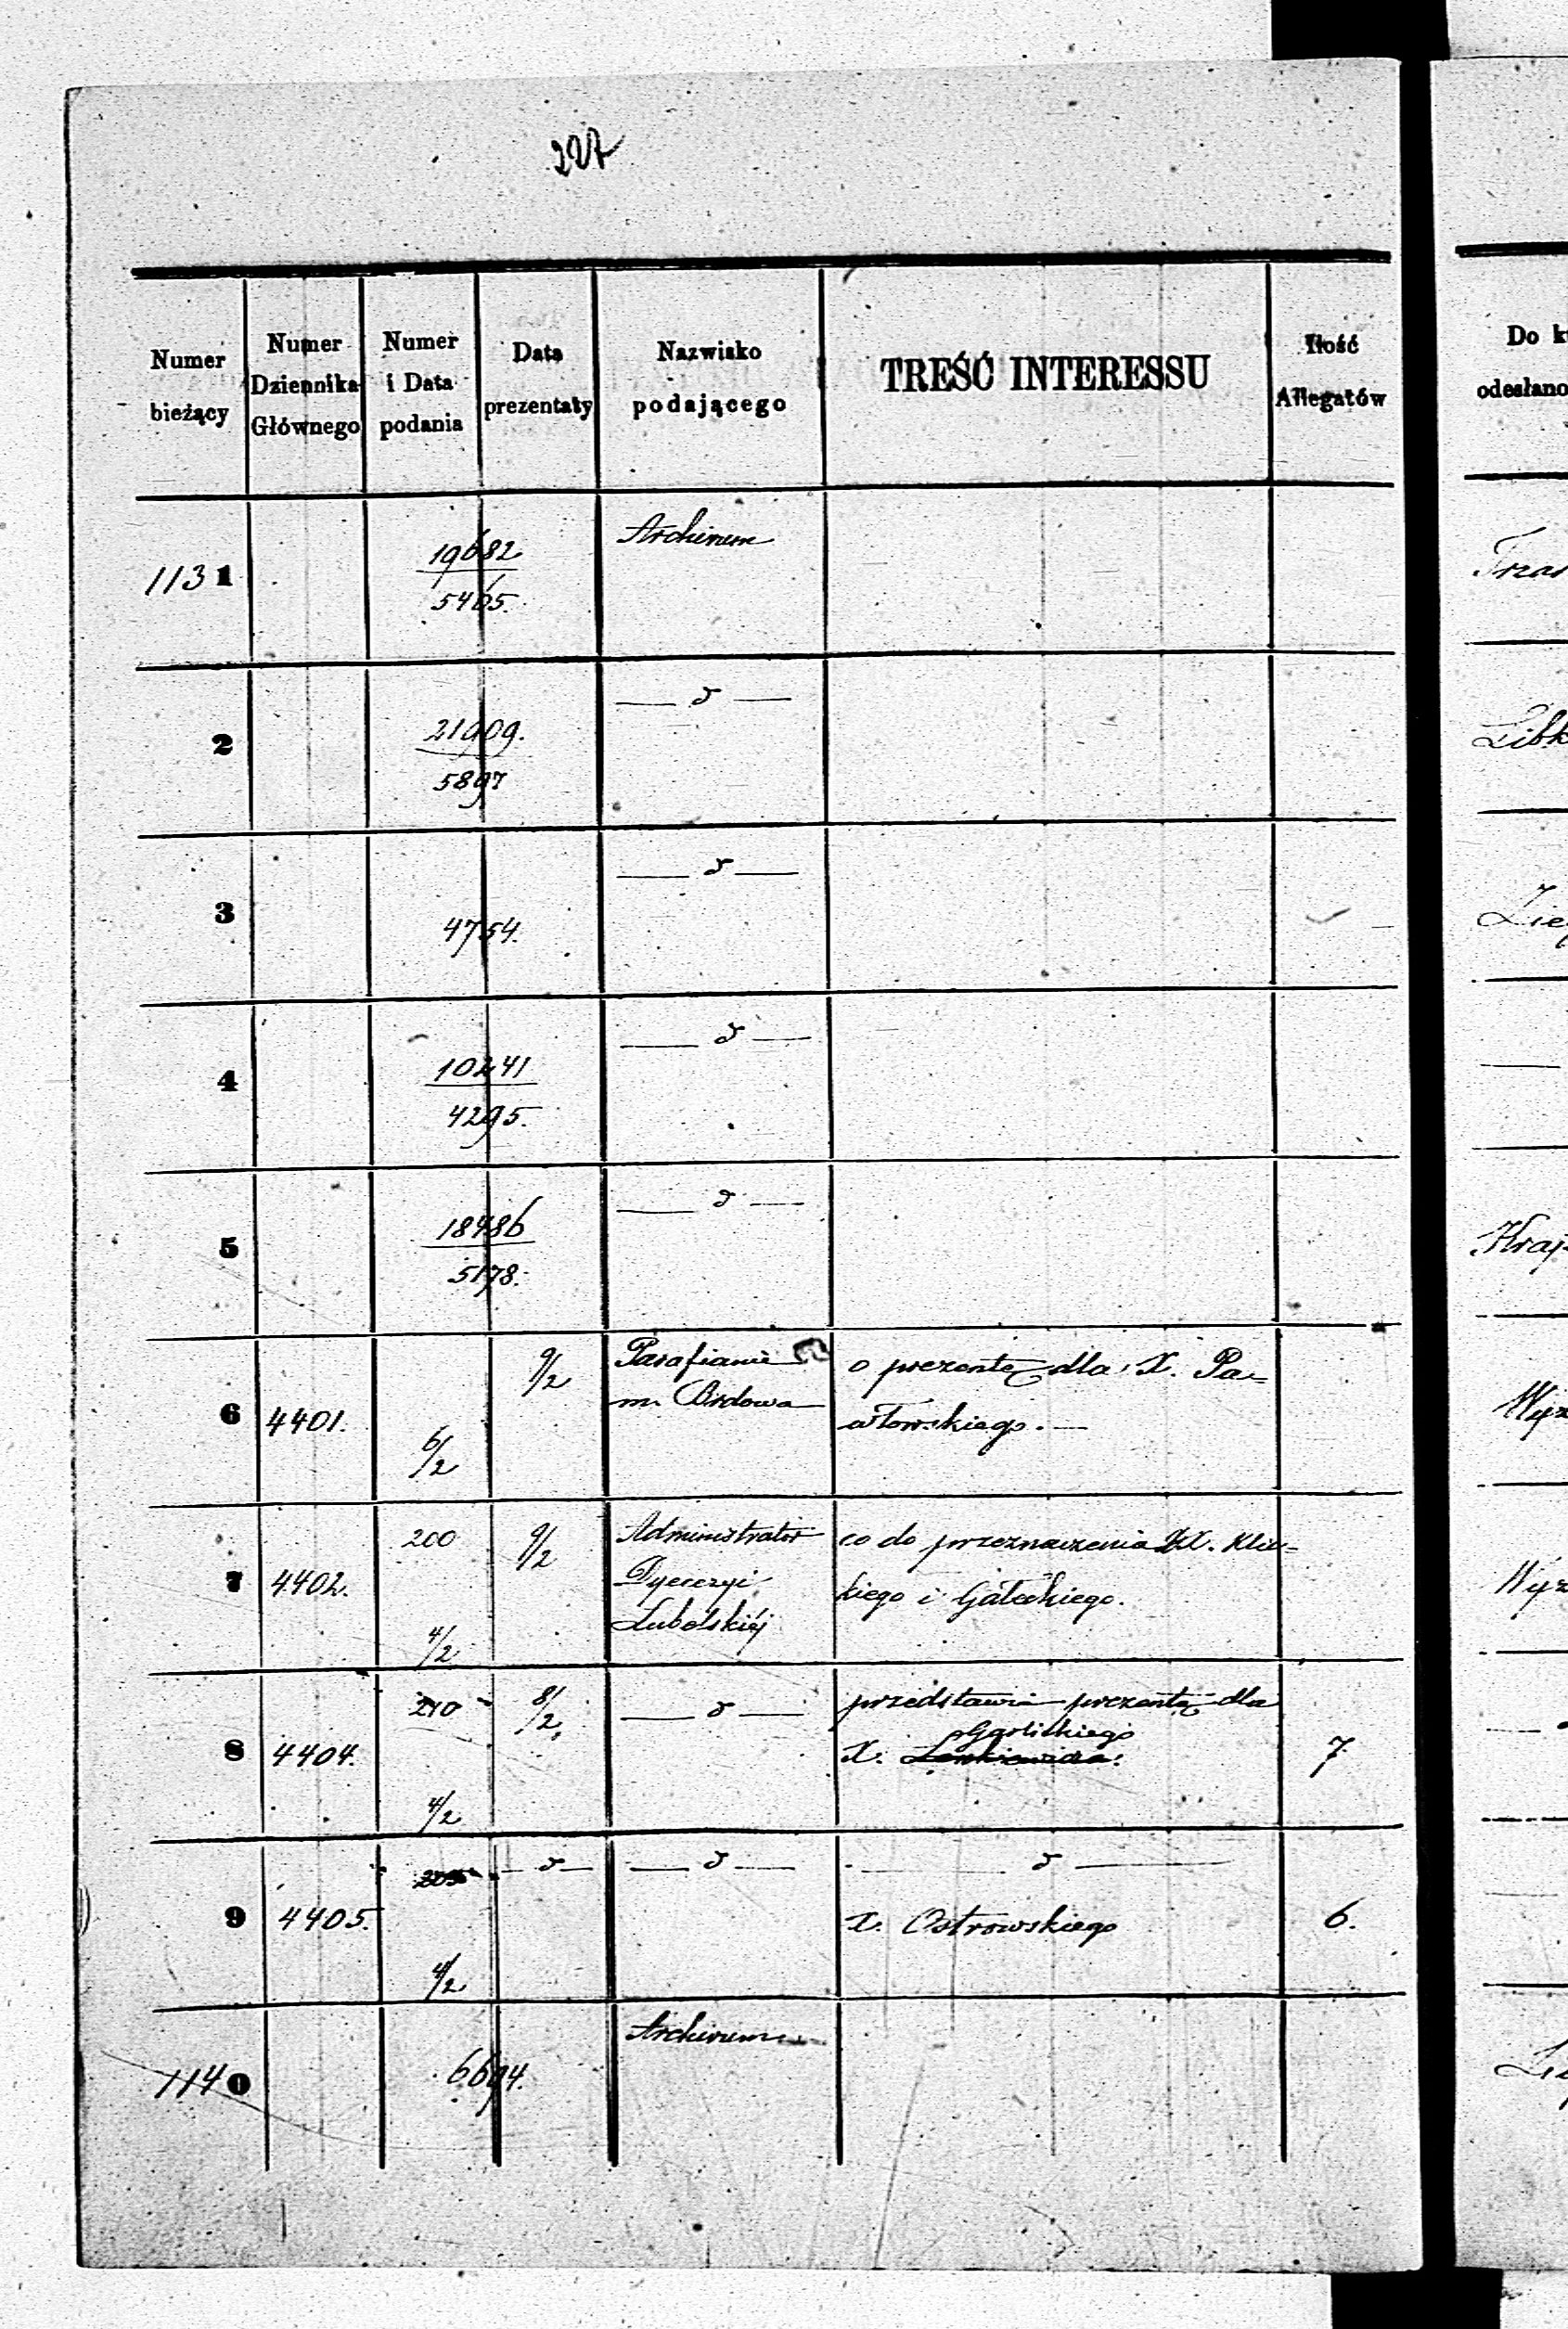 227
Numer bieżący
Numer Dziennika Głównego
Numer i Data podania
Data prezentaty
Nazwisko podającego
TREŚĆ INTERESSU
Ilość Allegatów
Do
odesłano
1131 19682 Archivum
5465.
2 21909. — d —
5897
3 4754. — d —
4 10241 — d —
4295.
5 18486 — d —
5178.
9/2 Parafianie o prezentę dla X. Pa-
6 4401. 6/2 m. Brdowa włowskiego. —
200 9/2 Administrator co do przeznaczenia XX. Klic-
7 4402. Dyecezyi kiego i Gałeckiego.
4/2 Lubelskiéj
210 8/2 — d — przedstawia prezentę dla
8 4404. X. 7
4/2
— d — — d — — d —
9 4405. X. Ostrowskiego 6.
4/2
1140 6694. Archivum